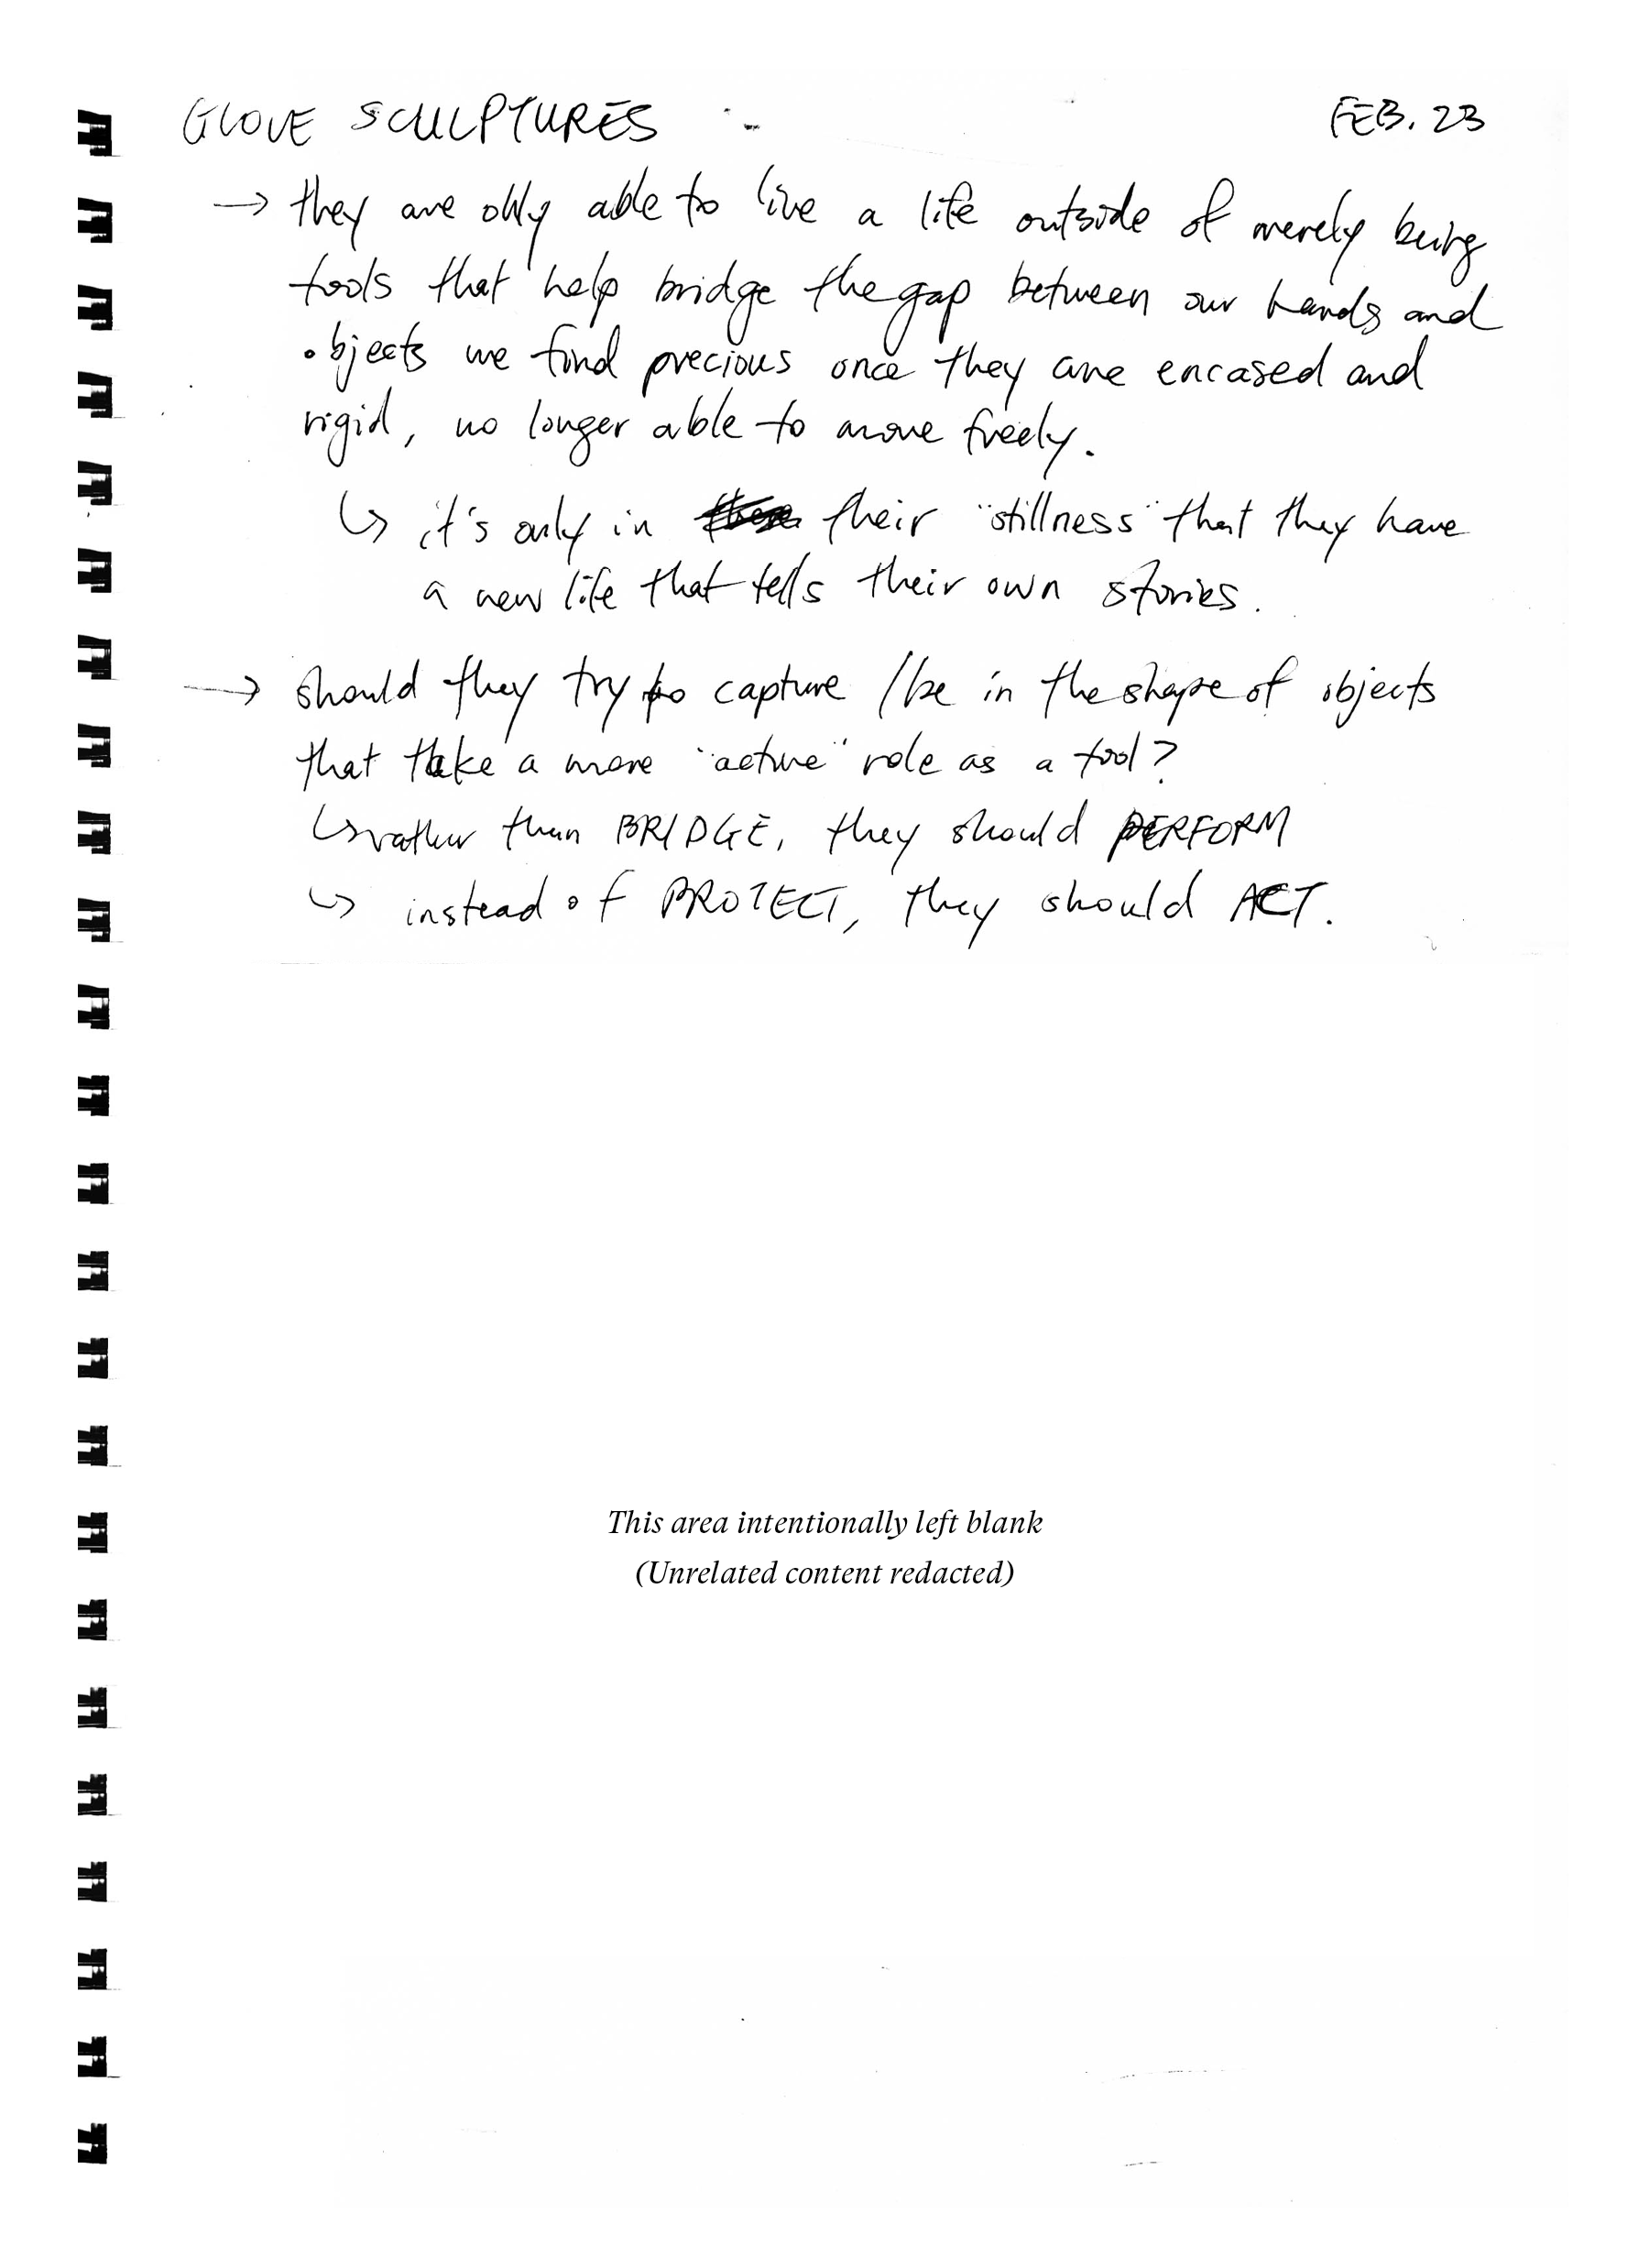 GLOVE SCULPTURES
FEB. 23
→ they are only able to live a life outside of merely being
tools that help bridge the gap between our hands and
objects we find precious once they are encased and
rigid, no longer able to move freely.
↳ it's only in their "stillness" that they have
a new life that tells their own stories.
→ should they try to capture / be in the shape of objects
that take a more "active" role as a tool?
↳ rather than BRIDGE, they should PERFORM
↳ instead of PROTECT, they should ACT.
This area intentionally left blank
(Unrelated content redacted)